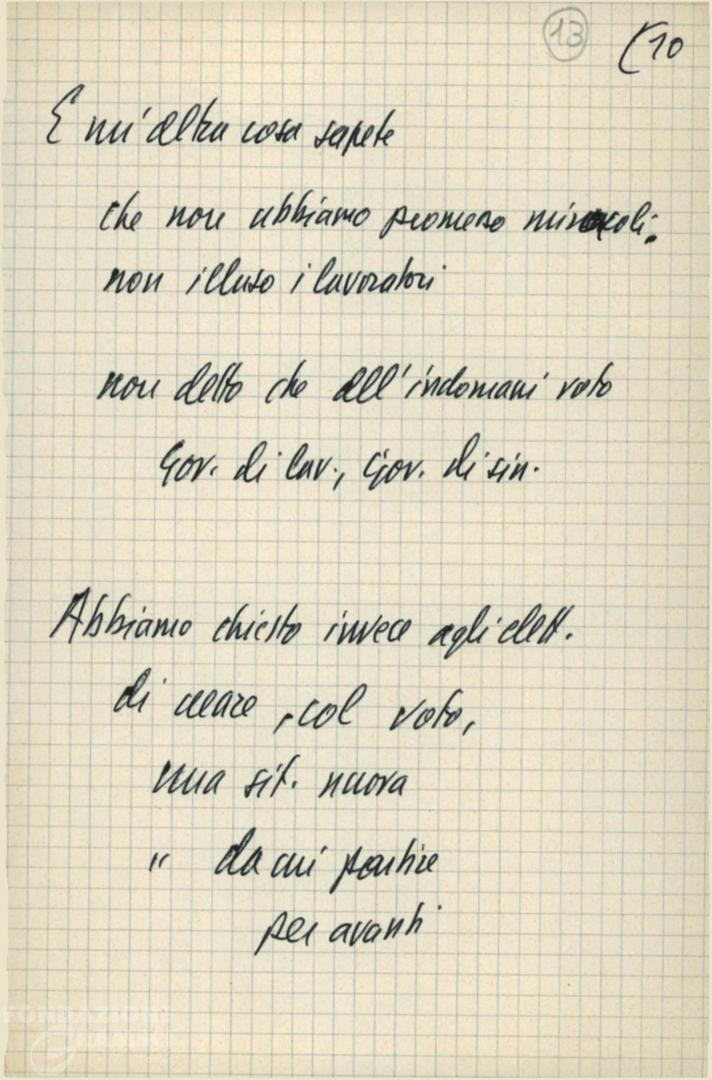 13
(10
E un'altra cosa sapete
che non abbiamo promesso miracoli:
non illuso i lavoratori
non detto che all'indomani voto
Gov. di lav., Gov. di sin.
Abbiamo chiesto invece agli elett.
di creare, col voto,
una sit. nuova
" da cui partire
per avanti
FONDAZIONE
GRAMSCI